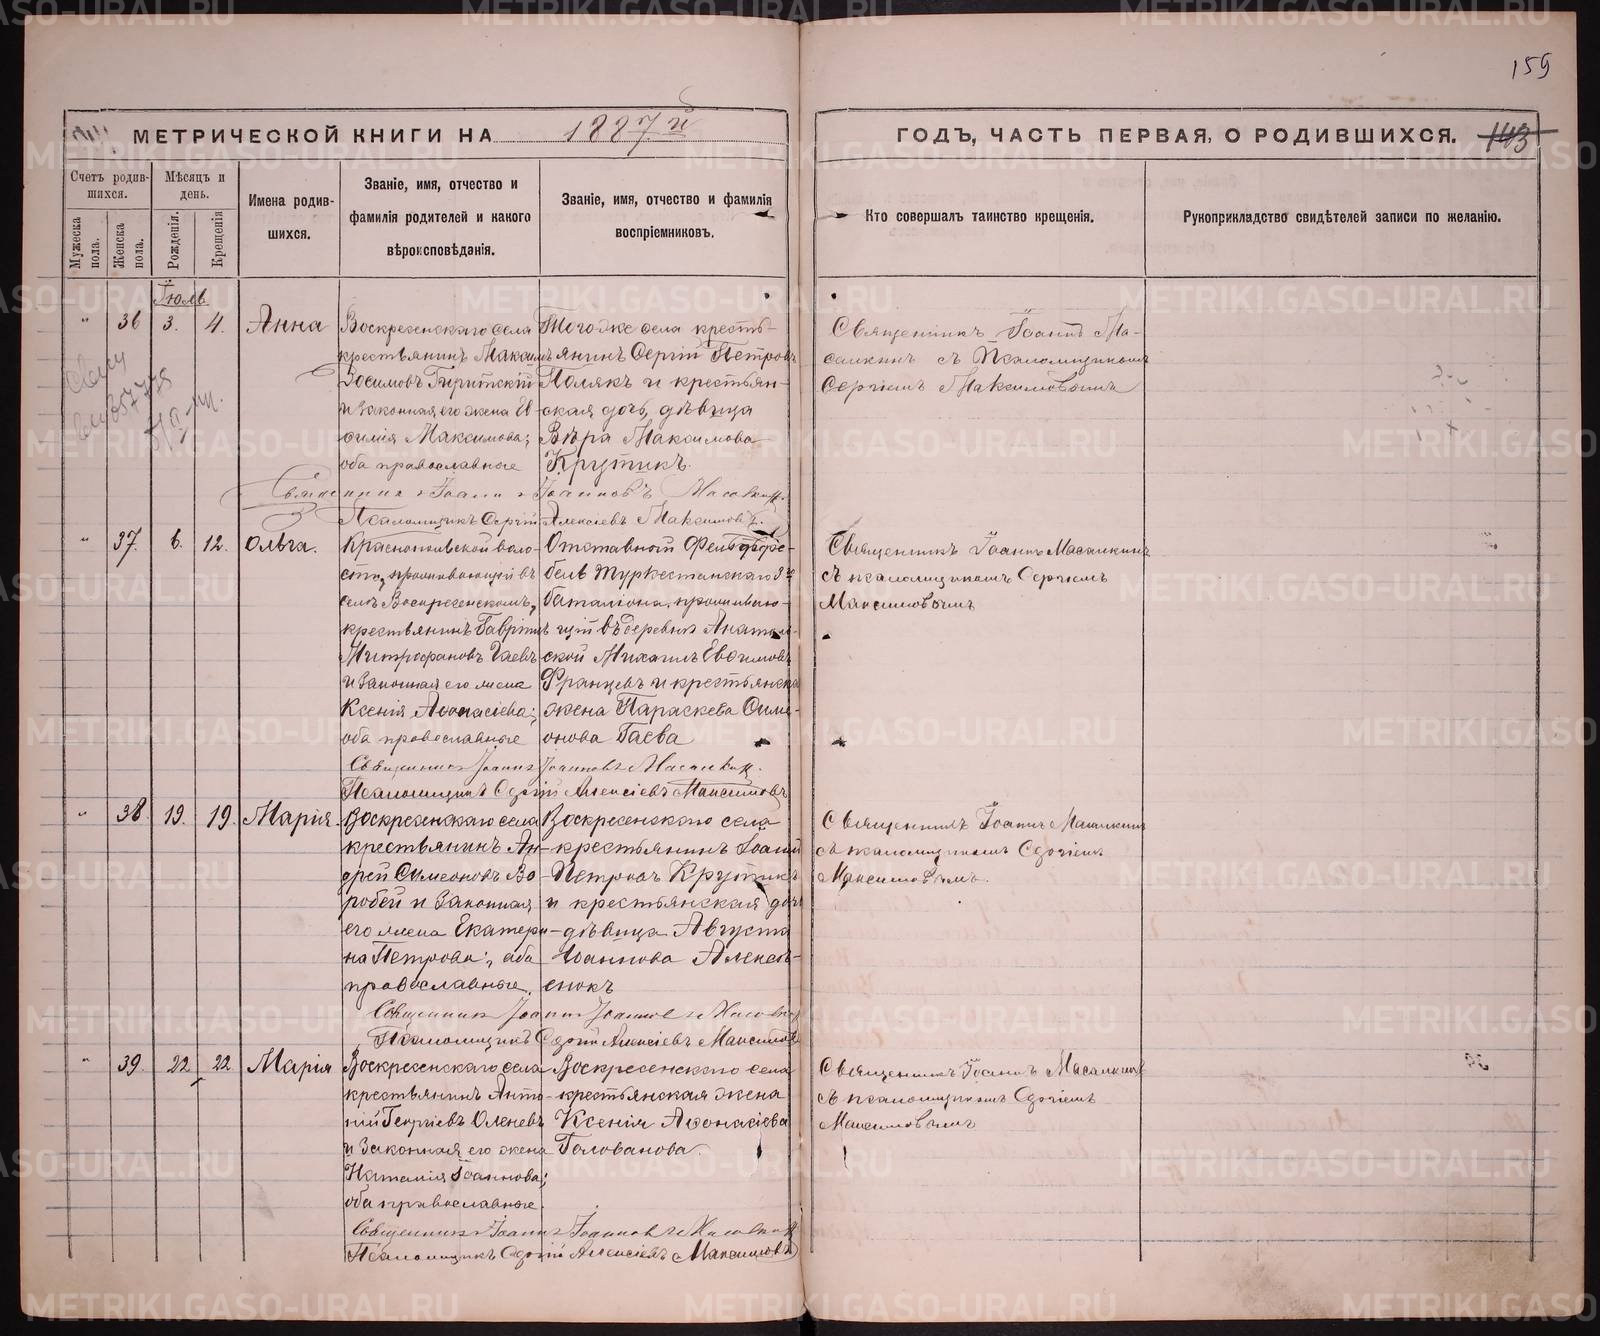 159
МЕТРИЧЕСКОЙ КНИГИ НА 1887й
ГОДЪ, ЧАСТЬ ПЕРВАЯ, О РОДИВШИХСЯ.
143
Счетъ родив-
шихся.
Мужеска пола.
Женска пола.
Мѣсяцъ и
день.
Рожденія.
Крещенія
Имена родив-
шихся.
Званіе, имя, отчество и
фамилія родителей и какого
вѣроисповѣданія.
Званіе, имя, отчество и фамилія
воспріемниковъ.
Кто совершалъ таинство крещенія.
Рукоприкладство свидѣтелей записи по желанію.
Іюль
" 36 3. 4. Анна
Воскресенскаго села
крестьянинъ Максимъ
Зосимовъ
и законная его жена Ев
фимія Максимова;
оба православные
Тогоже села кресть-
янинъ Сергій Петровъ
Полякъ и крестьян-
ская дочь, дѣвица
Вѣра Максимова
Крутикъ.
Священникъ Іоаннъ Ма-
салкинъ съ Псаломщикомъ
Сергіемъ Максимовымъ
Священникъ Іоаннъ Іоанновъ Масалкин
Псаломщикъ Сергій Алексіевъ Максимовъ.
" 37. 6. 12. Ольга.
Краснопольской воло-
сти, проживающій въ
селѣ Воскресенскомъ,
крестьянинъ Гавріилъ
Митрофановъ Гаевъ
и законная его жена
Ксенія Афонасіева;
оба православные
Отставной Фельдфе-
бель Туркестанскаго 3го
баталіона, проживаю-
щій въ деревнѣ Анатоль-
ской Михаилъ Евфимовъ
Францевъ и крестьянска
жена Параскева Симе-
онова Гаева
Священникъ Іоаннъ Масалкинъ
съ псаломщикомъ Сергіемъ
Максимовымъ
Священникъ Іоаннъ Іоанновъ Масалкин.
Псаломщикъ Сергій Алексіевъ Максимовъ
" 38. 19. 19. Марія.
Воскресенскаго села
крестьянинъ Ан-
дрей Симеоновъ Во-
робей и законная
его жена Екатери-
на Петрова; оба
православные.
Воскресенскаго села
крестьянинъ Іоаннъ
Петровъ Крутикъ
и крестьянская дочь
дѣвица Августа
Іоаннова Алексѣ-
енокъ
Священникъ Іоаннъ Масалкинъ
съ псаломщикомъ Сергіемъ
Максимовымъ.
Священникъ Іоаннъ Іоанновъ Масалкин
Псаломщикъ Сергій Алексіевъ Максимовъ
" 39. 22 22 Марія
Воскресенскаго села
крестьянинъ Анто-
ній Георгіевъ Оленевъ
и законная его жена
Наталія Іоаннова;
оба православные.
Воскресенскаго села
крестьянская жена
Ксенія Афонасіева
Голованова.
Священникъ Іоаннъ Масалкинъ
съ псаломщикомъ Сергіемъ
Максимовымъ
Священникъ Іоаннъ Іоанновъ Масалкин
Псаломщикъ Сергій Алексіевъ Максимовъ
METRIKI.GASO-URAL.RU